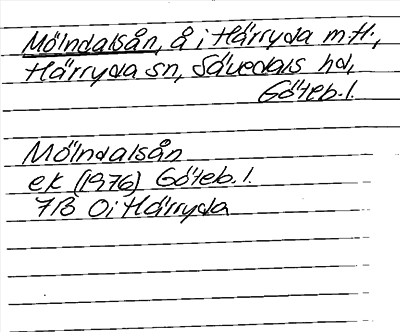 Mölndalsån, å i Härryda m.fl.,
Härryda sn, Sävedals hd,
Göteb. l.
Mölndalsån
ek (1976) Göteb. l.
7B 0i Härryda